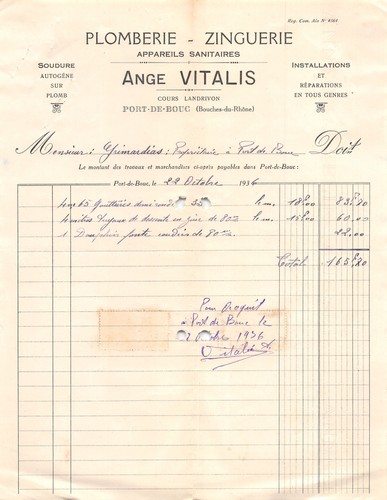 Reg. Com. Aix N° 4564
PLOMBERIE - ZINGUERIE
APPAREILS SANITAIRES
SOUDURE
AUTOGÈNE
SUR
PLOMB
ANGE VITALIS
COURS LANDRIVON
PORT-DE-BOUC (Bouches-du-Rhône)
INSTALLATIONS
ET
RÉPARATIONS
EN TOUS GENRES
Monsieur : Grimardias, Propriétaire à Port de Bouc Doit
Le montant des travaux et marchandises ci-après payables dans Port-de-Bouc :
Port-de-Bouc, le 22 Octobre 1936
4m 65 Gouttières le m. 18,00 83,20
4 mètres tuyaux de descente en zinc de 80 le m. 15,00 60,00
1 Dauphin fonte de 80 22,00
Total 165,20
Pour acquit
à Port de Bouc le
1936
Vitalis